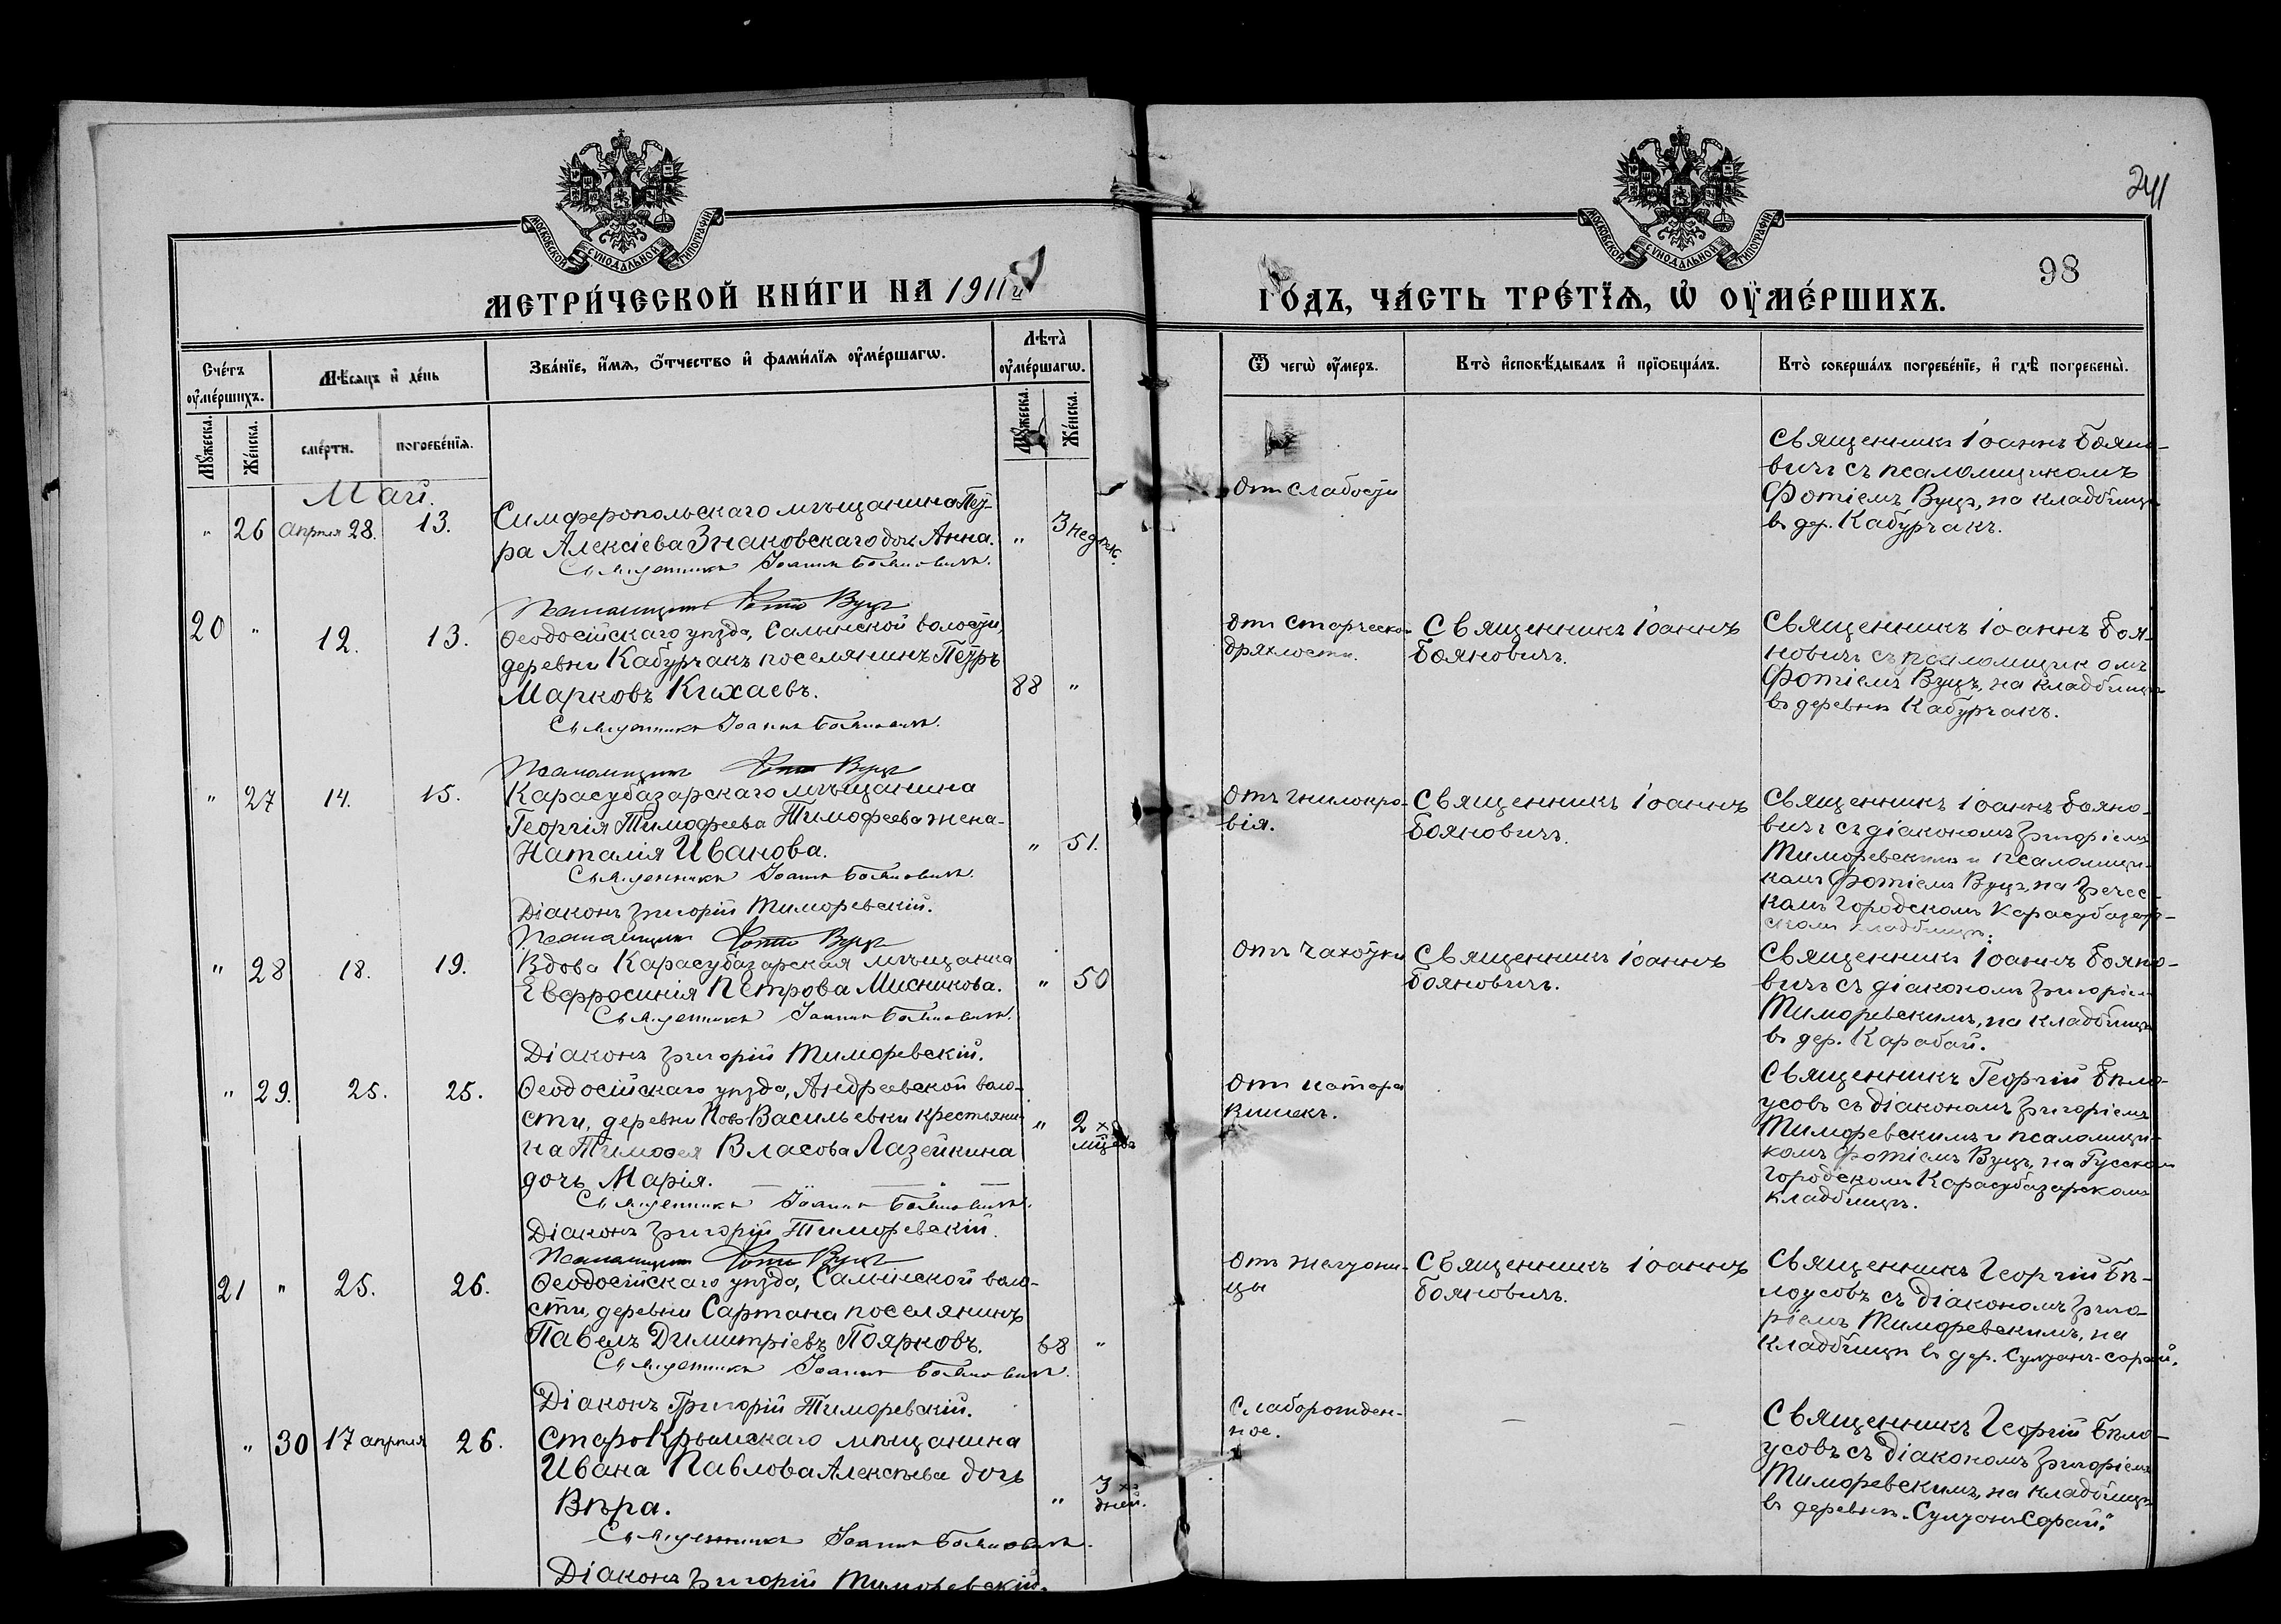 241
98
МОСКОВСКОЙ СУНОДАЛЬНОЙ ТИПОГРАФІИ
МОСКОВСКОЙ СУНОДАЛЬНОЙ ТИПОГРАФІИ
МЕТРИ́ЧЕСКОЙ КНИ́ГИ НА 1911й
ГО́ДЪ, ЧА́СТЬ ТРЕ́ТЇѦ, Ѡ ОУ҆МЕ́РШИХЪ.
Сче́тъ оу҆ме́ршихъ.
Мѣ́сѧцъ и҆ де́нь
Зва́нїе, и҆́мѧ, ѻ҆́тчество и҆ фами́лїѧ оу҆ме́ршагѡ.
Лѣ́та оу҆ме́ршагѡ.
Ѿ чегѡ̀ оу҆́меръ.
Кто̀ и҆сповѣ́дывалъ и҆ прїѻбща́лъ.
Кто̀ соверша́лъ погребе́нїе, и҆ гдѣ̀ погребены̀.
Мꙋ́жеска.
Же́нска.
сме́рти.
погребе́нїѧ.
Мꙋ́жеска.
Же́нска.
Май.
" 26 апрѣля 28. 13.
Симферопольскаго мѣщанина Пет-
ра Алексіева Знаковскаго дочь Анна.
" 3 недѣл.
Священникъ Іоаннъ Бояновичъ.
Псаломщикъ Фотій Вуцъ
От слабости
Священникъ Іоаннъ Бояно-
вичъ съ псаломщикомъ
Фотіемъ Вуцъ, на кладбищѣ
въ дер. Кабурчакъ.
20 " 12. 13.
Ѳеодосійскаго уѣзда, Салынской волости,
деревни Кабурчакъ поселянинъ Петръ
Марковъ Кихаевъ.
88 "
Священникъ Іоаннъ Бояновичъ.
Псаломщикъ Фотій Вуцъ
От старческо-
дряхлости.
Священникъ Іоаннъ
Бояновичъ.
Священникъ Іоаннъ Боя-
новичъ съ псаломщикомъ
Фотіемъ Вуцъ, на кладбищѣ
въ деревнѣ Кабурчакъ.
" 27 14. 15.
Карасубазарскаго мѣщанина
Георгія Тимофеева Тимофеева жена-
Наталія Иванова.
" 51.
Священникъ Іоаннъ Бояновичъ.
Діаконъ Григорій Тиморевскій.
Псаломщикъ Фотій Вуцъ
Отъ гнилокро-
вія.
Священникъ Іоаннъ
Бояновичъ.
Священникъ Іоаннъ Бояно-
вичъ съ діакономъ Григоріемъ
Тиморевскимъ и псаломщи-
комъ Фотіемъ Вуцъ, на Гречес-
комъ городскомъ Карасубазар-
скомъ кладбищѣ.
" 28 18. 19.
Вдова Карасубазарская мѣщанка
Евфросинія Петрова Мисникова.
" 50
Священникъ Іоаннъ Бояновичъ.
Діаконъ Григорій Тиморевскій.
Отъ чахотки
Священникъ Іоаннъ
Бояновичъ.
Священникъ Іоаннъ Бояно-
вичъ съ діакономъ Григоріем
Тиморевскимъ, на кладбищѣ
въ дер. Карабай.
" 29. 25. 25.
Ѳеодосійскаго уѣзда, Андреевской воло-
сти, деревни Ново-Васильевки крестьяни-
на Тимоѳея Власова Лазейкина
дочь Марія.
" 2 хъ мѣцевъ
Священникъ Іоаннъ Бояновичъ.
Діаконъ Григорій Тиморевскій.
Псаломщикъ Фотій Вуцъ
От катара
кишекъ.
Священникъ Георгій Бѣло-
усовъ съ діакономъ Григоріемъ
Тиморевскимъ и псаломщи-
комъ Фотіемъ Вуцъ, на Русском
городскомъ Карасубазарскомъ
кладбищѣ.
21 " 25. 26.
Ѳеодосійскаго уѣзда, Салынской воло-
сти, деревни Сартана поселянинъ
Павелъ Димитріевъ Поярковъ.
68 "
Священникъ Іоаннъ Бояновичъ.
Діаконъ Григорій Тиморевскій.
От желтони-
цы
Священникъ Іоаннъ
Бояновичъ.
Священникъ Георгій Бѣ-
лоусовъ съ Діакономъ Григо-
ріемъ Тиморевскимъ, на
кладбищѣ въ дер. Султанъ-сарай.
" 30 17 апрѣля 26.
СтароКрымскаго мѣщанина
Ивана Павлова Алексѣева дочь
Вѣра.
" 3 хъ дней.
Священникъ Іоаннъ Бояновичъ.
Діаконъ Григорій Тиморевскій.
Слаборожден-
ное.
Священникъ Георгій Бѣло-
усовъ съ Діакономъ Григоріемъ
Тиморевскимъ, на кладбищѣ
въ деревнѣ „Султанъ Сарай."